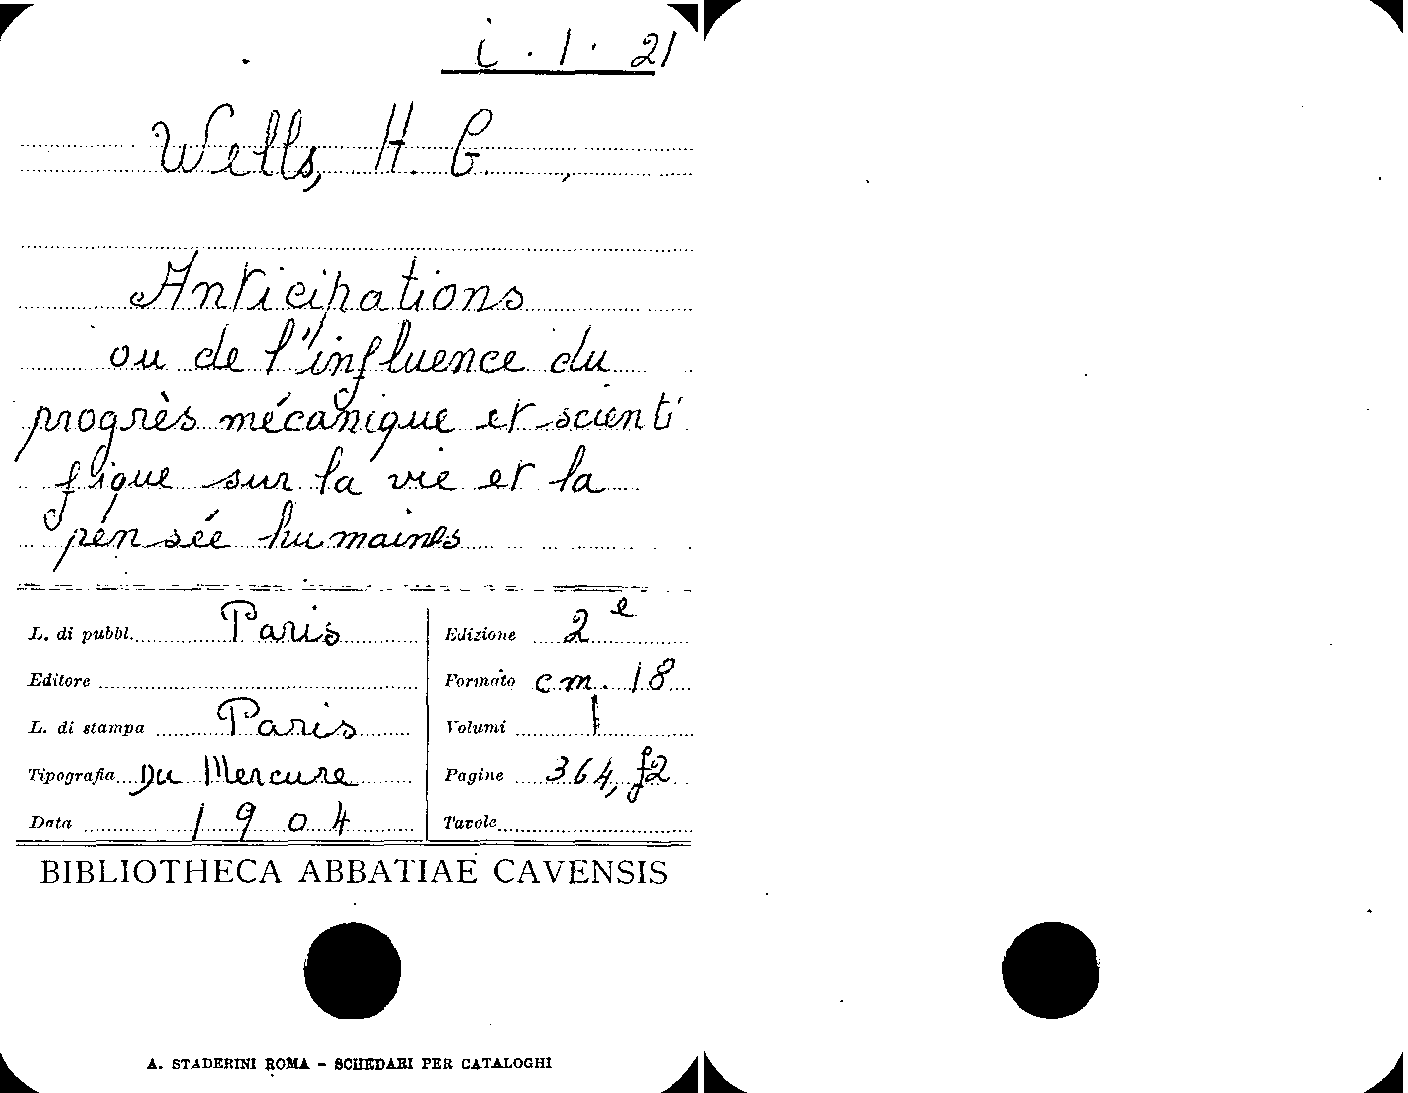 i . 1 . 21
Wells, H. G. ,
Anticipations
ou de l'influence du
progrès mécanique et scienti
fique sur la vie et la
pensée humaines
L. di pubbl. Paris
Editore
L. di stampa Paris
Tipografia Du Mercure
Data 1904
Edizione 2e
Formato cm. 18
Volumi 1
Pagine 364, f2
Tavole
BIBLIOTHECA ABBATIAE CAVENSIS
A. STADERINI ROMA - SCHEDARI PER CATALOGHI